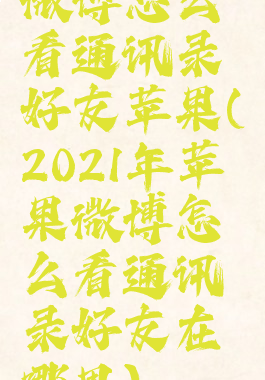 微博怎么
看通讯录
好友苹果(
2021年苹
果微博怎
么看通讯
录好友在
哪里)